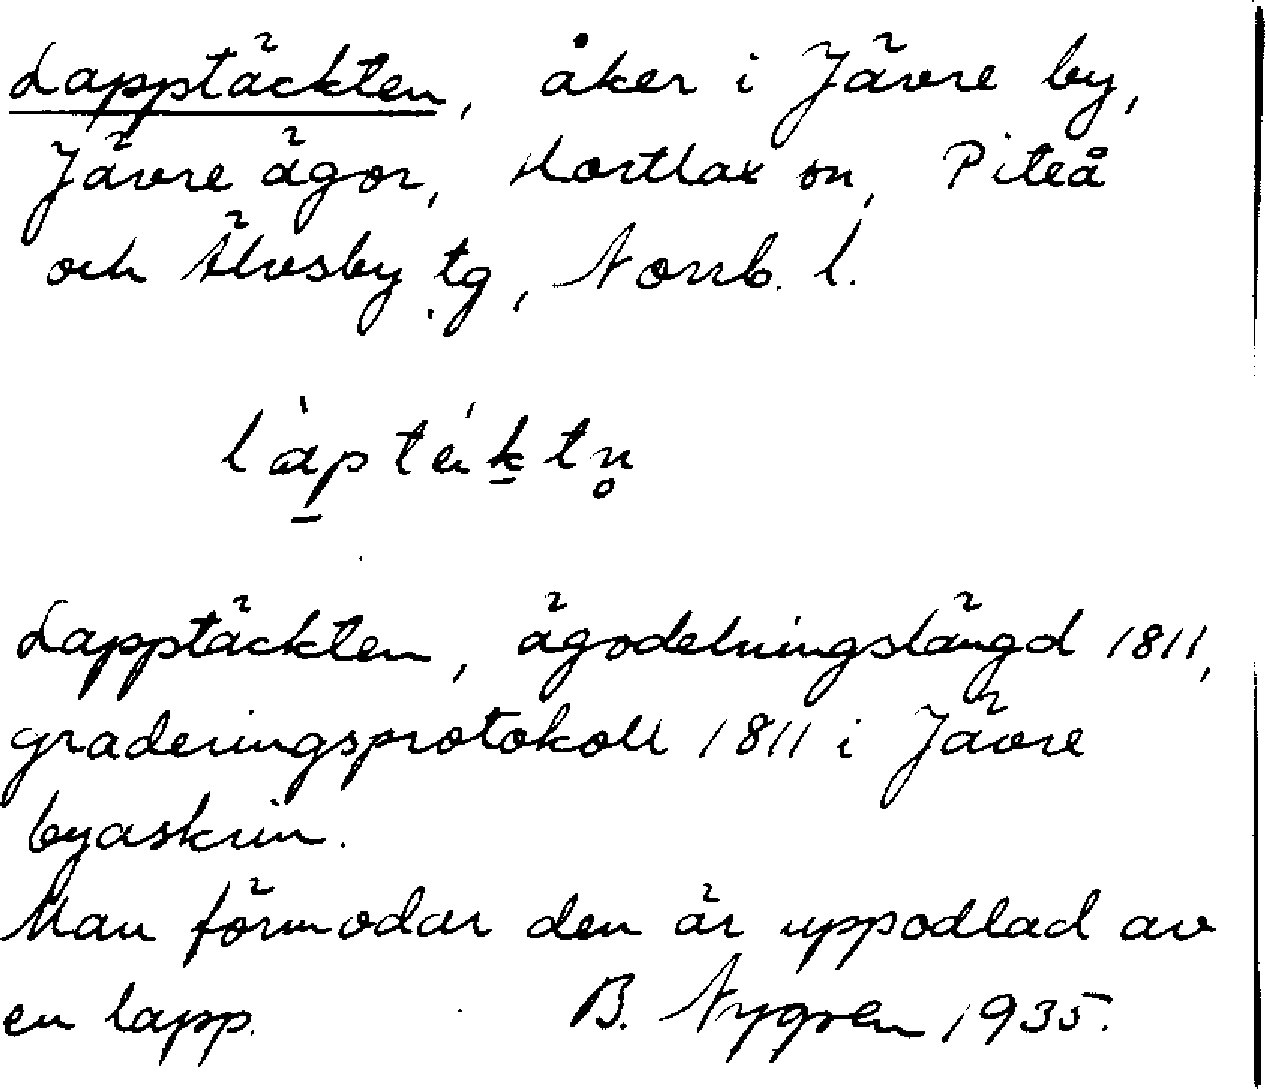 Lapptäckten, åker i Jävre by,
Jävre ägor, Hortlax sn, Piteå
och Älvsby tg, Norrb. l.
l̀a̠ptäḱ̠tn̥
Lapptäckten, ägodelningslängd 1811,
graderingsprotokoll 1811 i Jävre
byaskrin.
Man förmodar den är uppodlad av
en lapp. B. Nygren 1935.